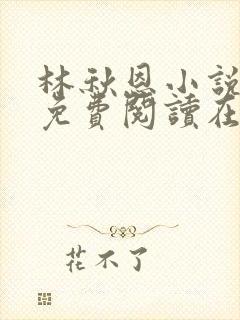 林秋恩小說
免費閱讀在
花不了